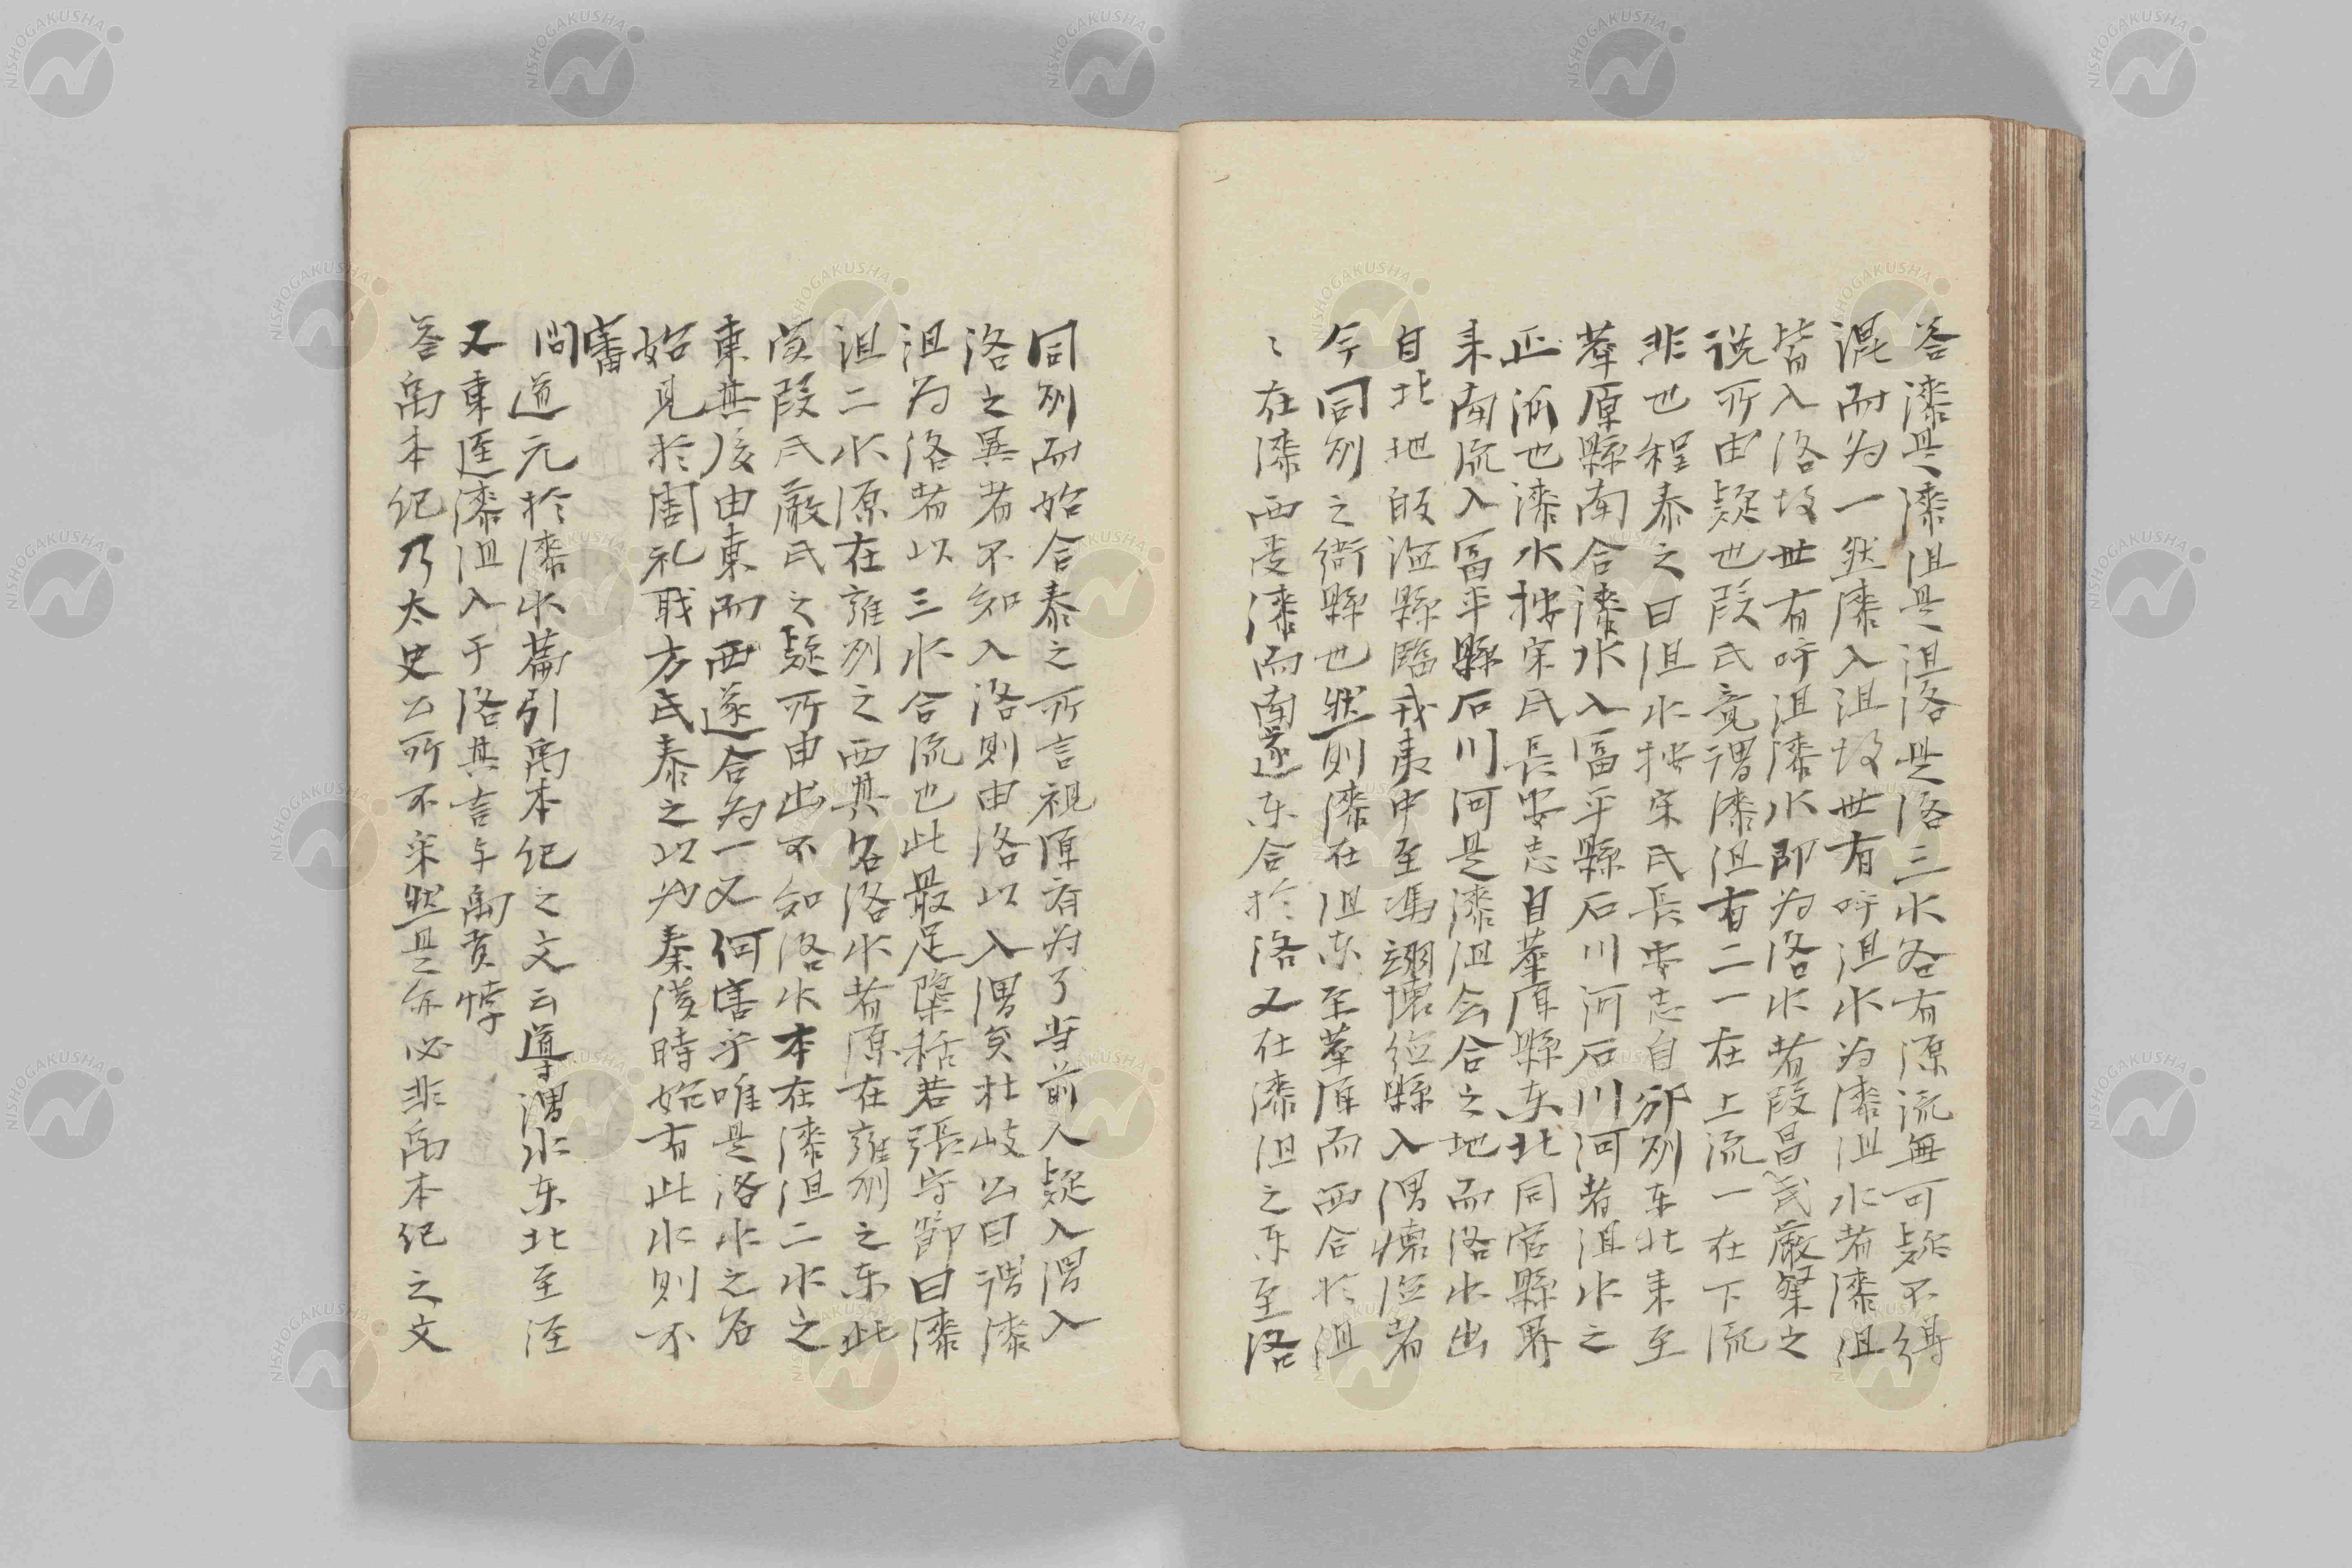 答漆是漆沮是沮洛是洛三水各有源流無可疑不得
混而为一然漆入沮故世有呼沮水为漆沮水者漆沮
皆入洛故世有呼沮漆水即为洛水者段昌武嚴粲之
说所由疑也段氏竟谓漆沮有二一在上流一在下流
非也程泰之曰沮水按宋氏長安志自邠州东北来至
華原縣南合漆水入富平縣石川河石川河者沮水之
正派也漆水按宋氏長安志自華原縣东北同官縣界
来南流入富平縣石川河是漆沮会合之地而洛水出
自北地歸德縣臨戎夷中至馮翊懷德縣入渭懷德者
今同州之衙縣也然则漆在沮东至華原而西合於沮
〻在漆西受漆而南遂东合於洛又在漆沮之东至洛
同州而始合泰之所言視原有为了当前人疑入渭入
洛之異者不知入洛則由洛以入渭矣杜岐公曰谓漆
沮为洛者以三水合流也此最足隱栝若張守節曰漆
沮二水原在雍州之西其名洛水者原在雍州之东此
茂段氏嚴氏之疑所由出不知洛水本在漆沮二水之
東其後由東而西遂合为一又何害乎唯是洛水之名
始見於周礼職方氏泰之以为秦漢時始有此水則不
審
問道元於漆水篇引禹本紀之文云導渭水东北至涇
又東逕漆沮入于洛其言与禹貢悖
答禹本紀乃太史公所不采然是亦必非禹本紀之文
NISHOGAKUSHA